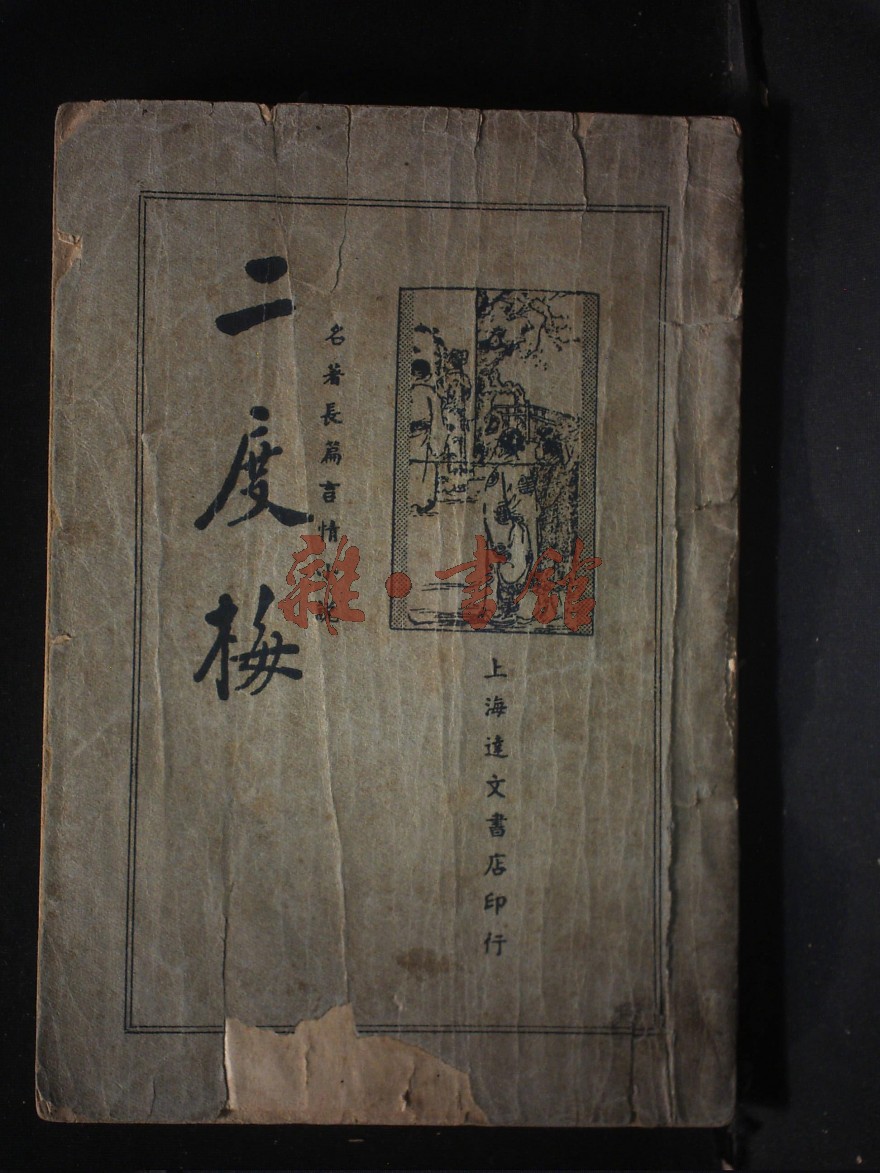 二度梅
名著長篇言情小說
上海達文書店印行
雜·書館